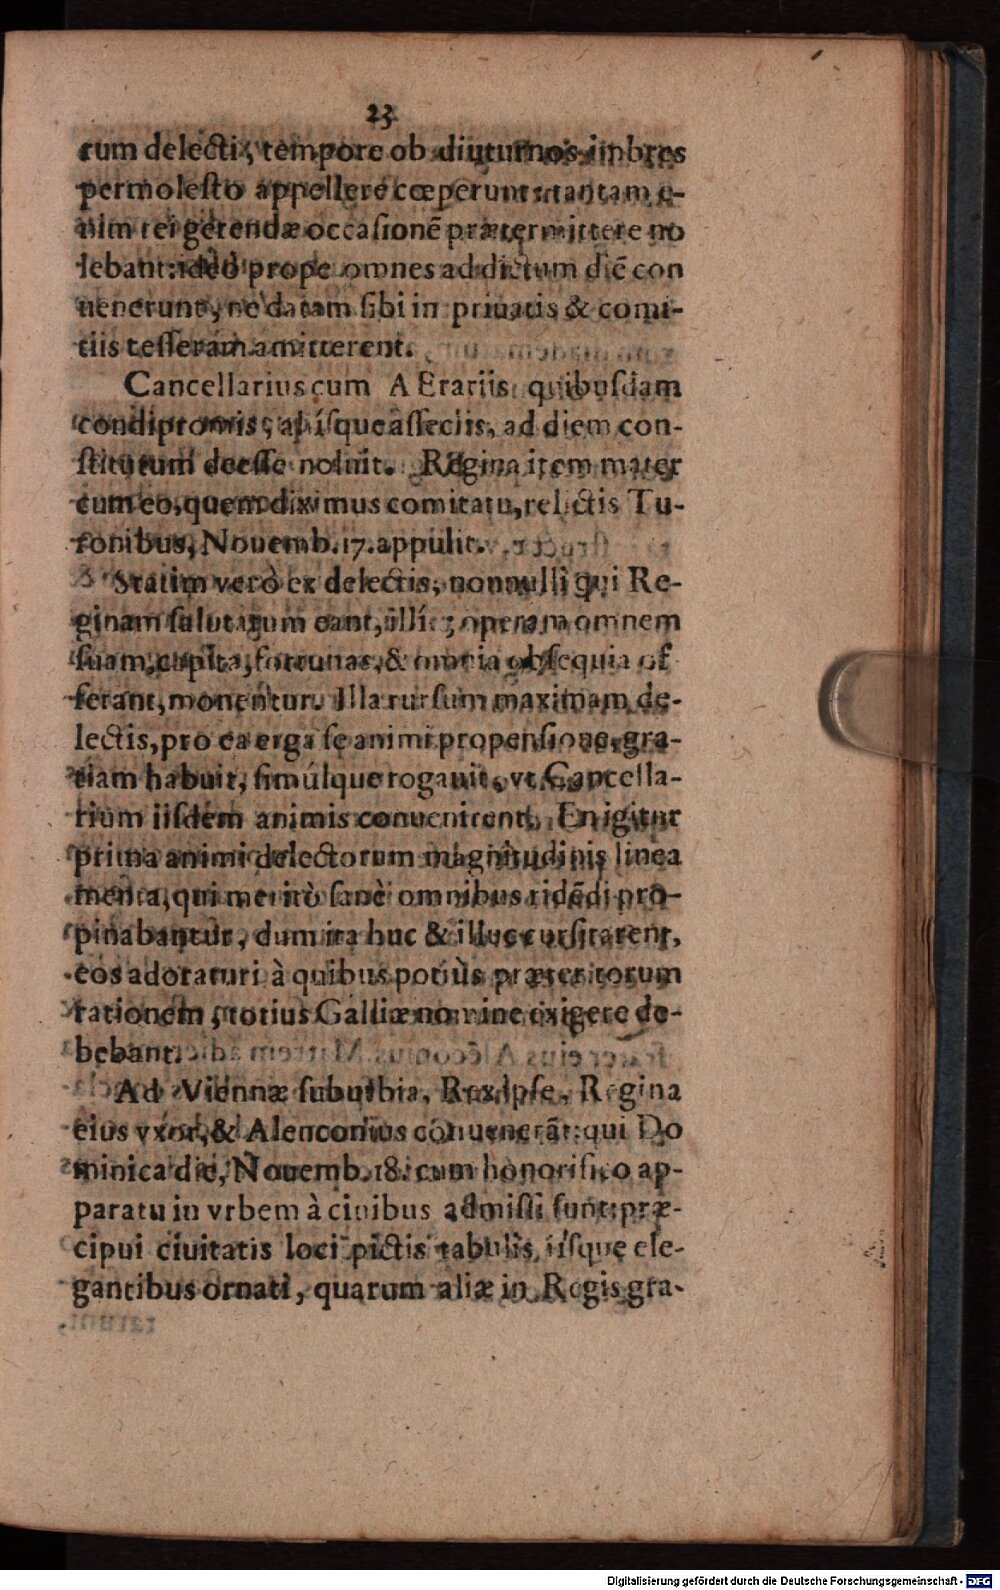 23
rum delecti, tempore ob diuturnos imbres
permolesto appellere cœperunt: tantam e-
nim rei gerendæ occasionē prætermittere no
lebant: ideò prope omnes ad dictum diē con
uenerunt, ne datam sibi in priuatis & comi-
tiis tesseram amitterent.
Cancellarius cum AErariis quibusdam
condipromis, aliísque asseclis, ad diem con-
stitutum deesse noluit. Regina item mater
cum eo, quem diximus comitatu, relictis Tu-
ronibus, Nouemb. 17. appulit.
Statim verò ex delectis, nonnulli qui Re-
ginam salutatum eant, illíq; operam omnem
suam, capita, fortunas, & omnia obsequia of
ferant, monentur. Illa rursum maximam de-
lectis, pro ea erga se animi propensione, gra-
tiam habuit, simúlque rogauit, vt Cancella-
rium iisdem animis conuenirent. En igitur
prima animi delectorum magnitudinis linea
menta, qui meritò sanè omnibus ridēdi pro-
pinabantur, dum ita huc & illuc cursitarent,
eos adoraturi à quibus potiùs præteritorum
rationem, totius Galliæ nomine exigere de-
bebant.
Ad Viennæ suburbia, Rex ipse, Regina
eius vxor, & Alenconius conuenerāt: qui Do
minica die, Nouemb. 18. cum honorifico ap-
paratu in vrbem à ciuibus admissi sunt: præ-
cipui ciuitatis loci pictis tabulis, iisque ele-
gantibus ornati, quarum aliæ in Regis gra-
Digitalisierung gefördert durch die Deutsche Forschungsgemeinschaft - DFG